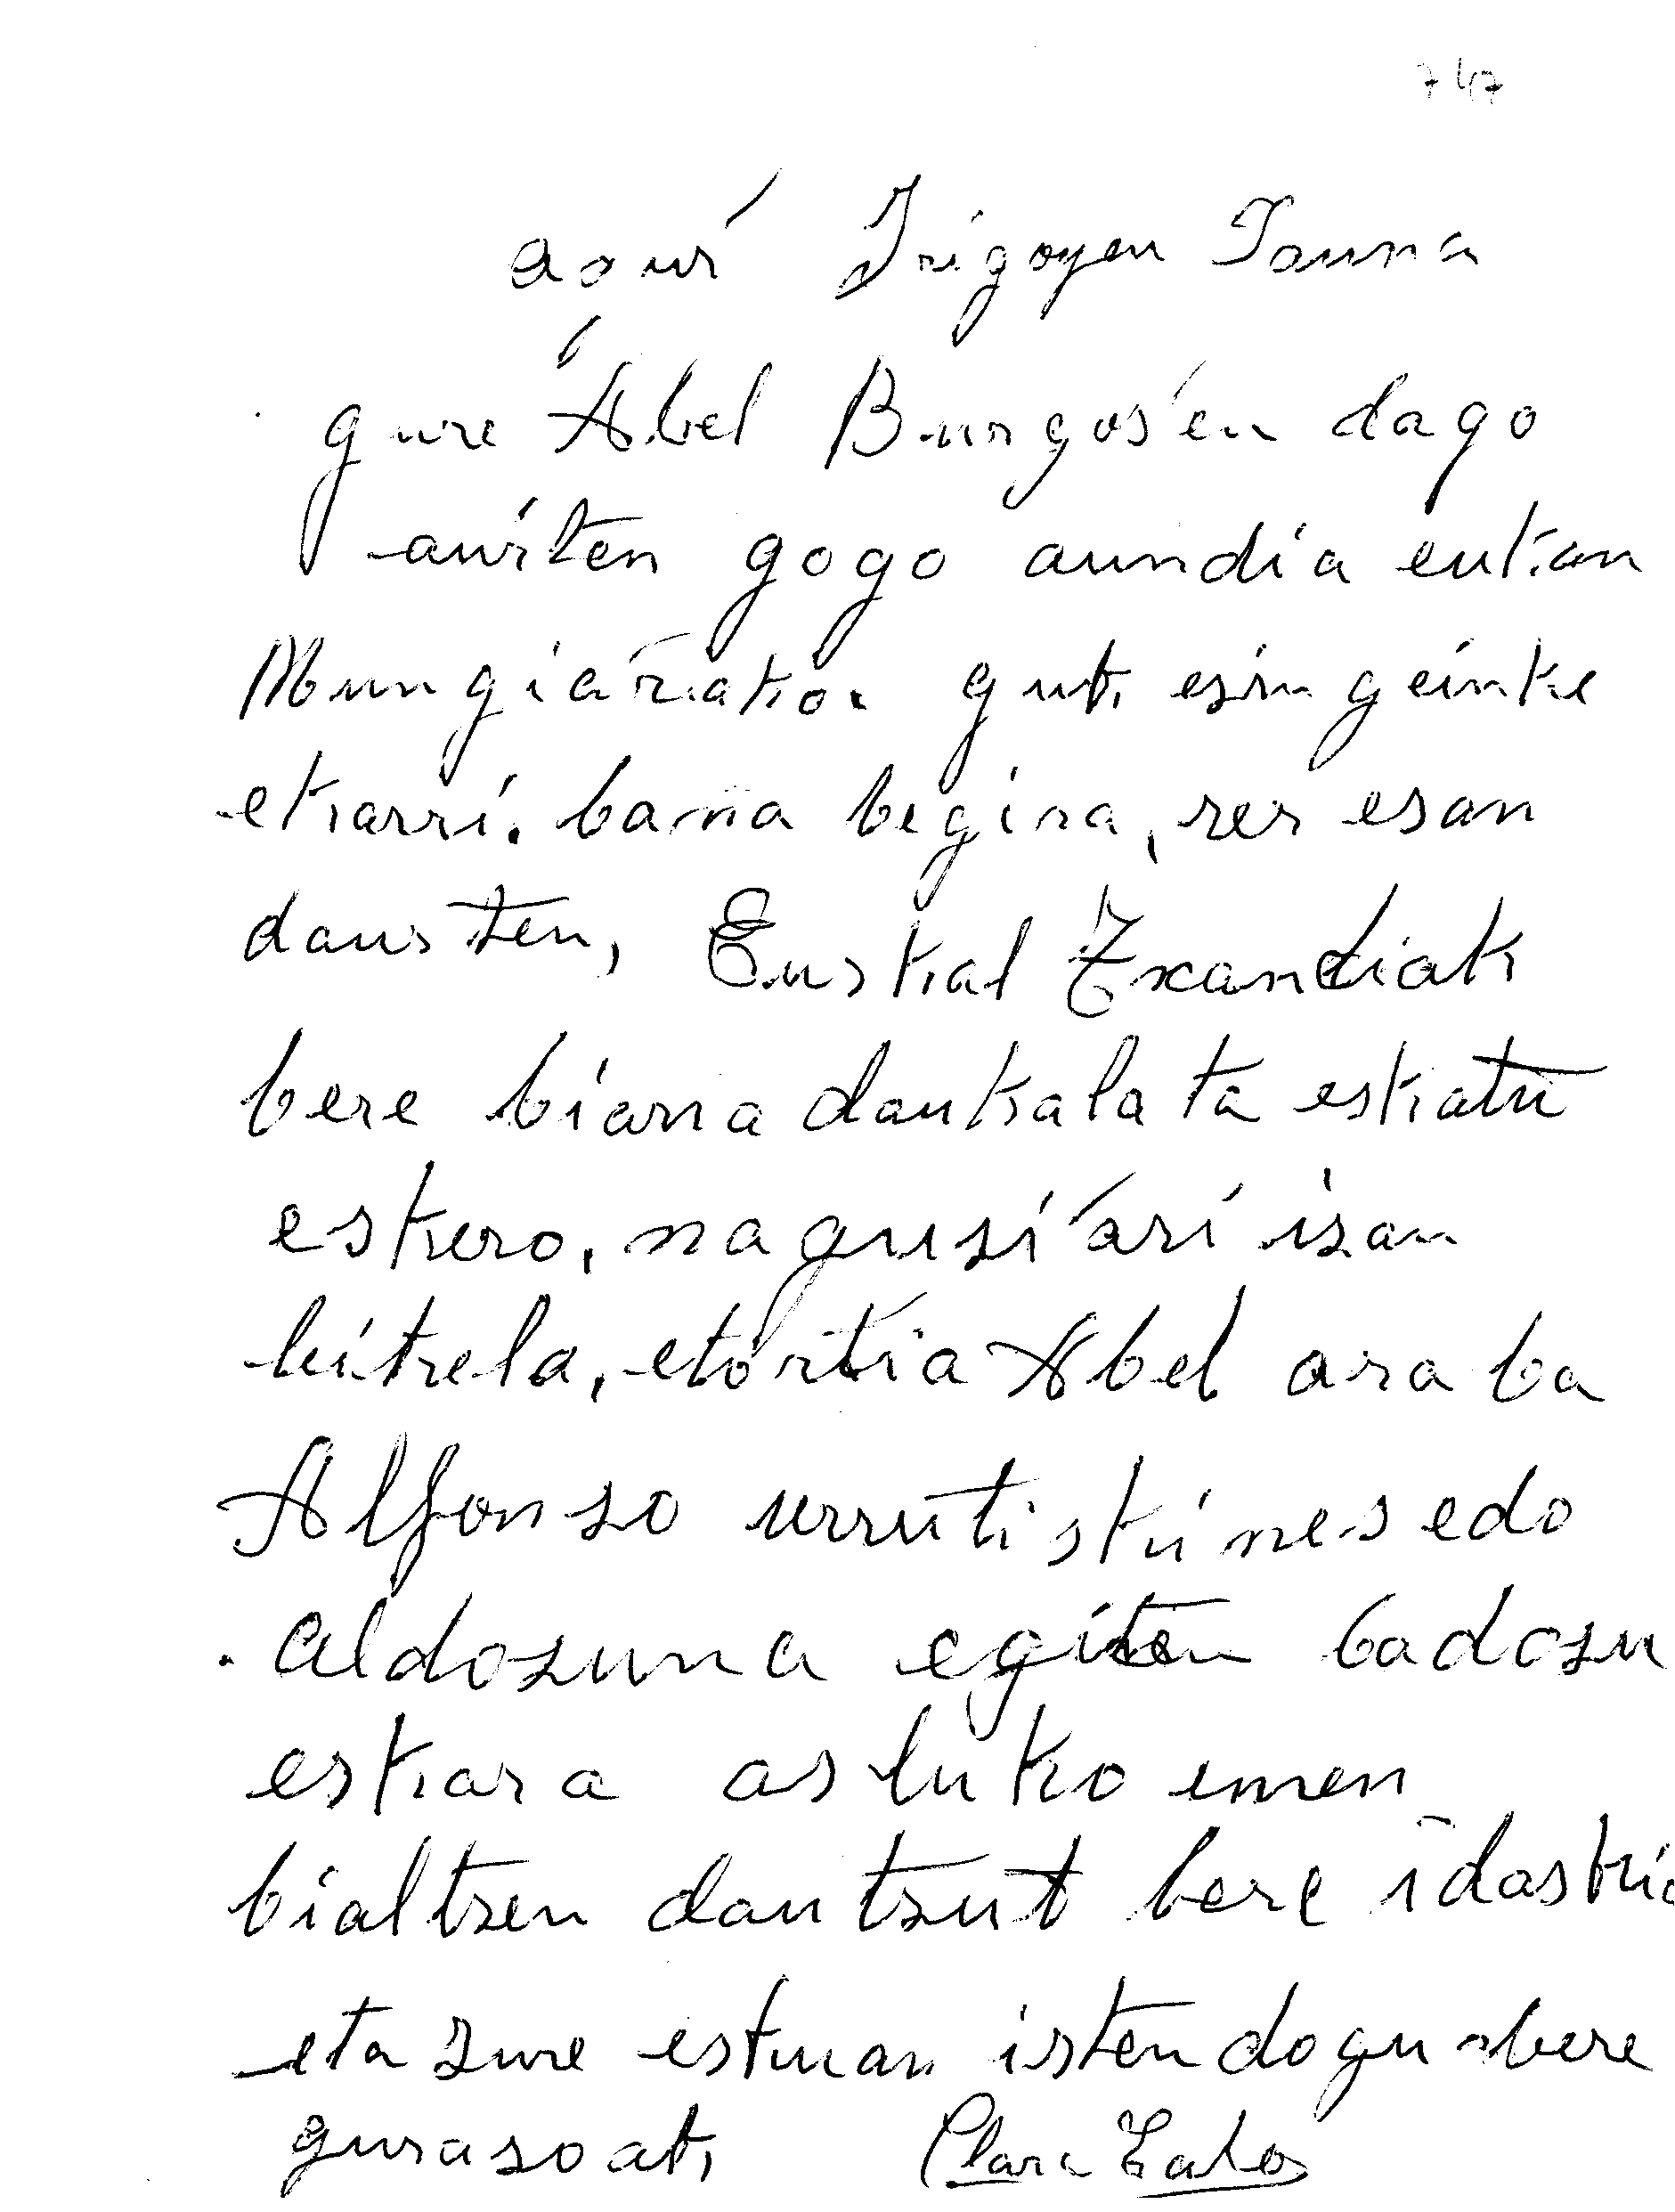 747
agur Irigoyen Jauna
gure Abel Burgos'en dago
aurten gogo aundia eukan
Mungiarako. guk esin geinke
ekarri. baña begira, zer esan
dausten, Euskal Txandiak
bere biarra daukala ta eskatu
eskero, nagusiari izan
leitzela, etortia Abel ara ba
Alfonso urrutiskiñes edo
aldozuna egiten badozu
eskara astuko emen
bialtzen dautzut bere idaskia
eta zure eskuan isten dogu bere
gurasoak Clara